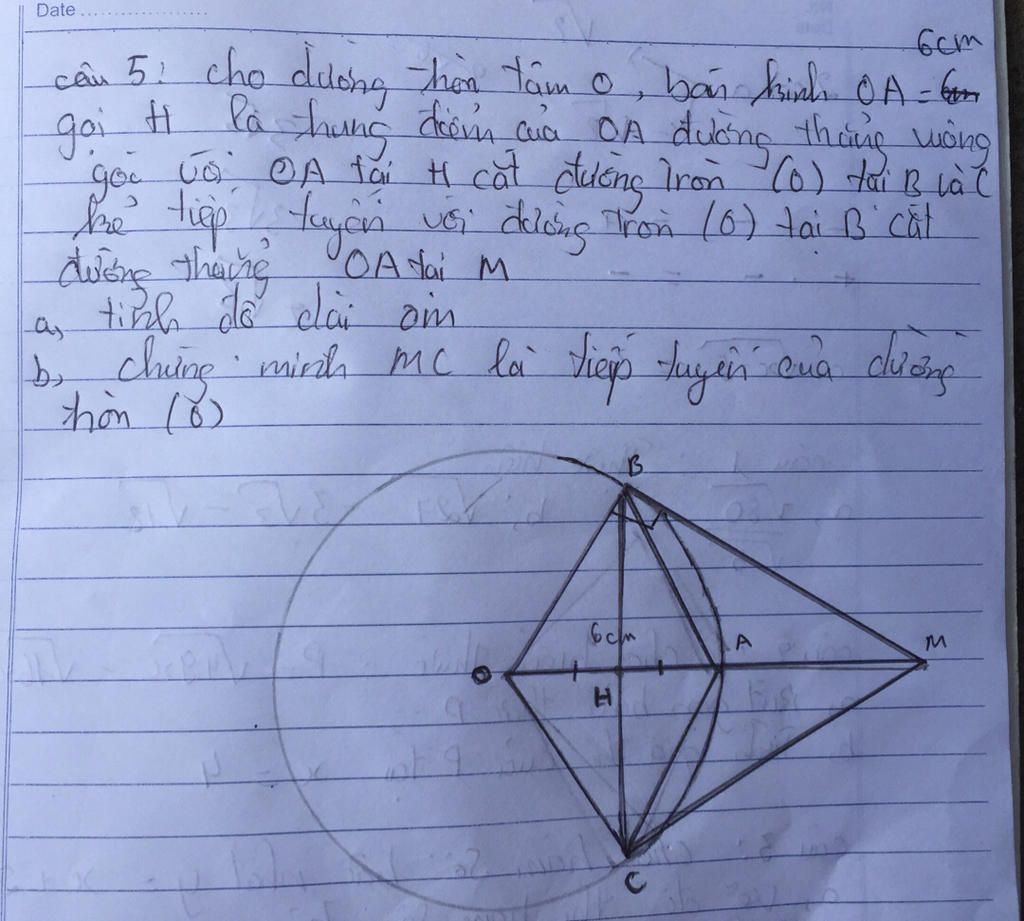 Date
6cm
câu 5: cho đường tròn tâm O, bán kính OA =
gọi H là trung điểm của OA đường thẳng vuông
góc với OA tại H cắt đường tròn (O) tại B và C
kẻ tiếp tuyến với đường tròn (O) tại B cắt
đường thẳng OA tại M
a, tính độ dài om
b, chứng minh MC là tiếp tuyến của đường
tròn (O)
B
6cm
A
M
O
H
C